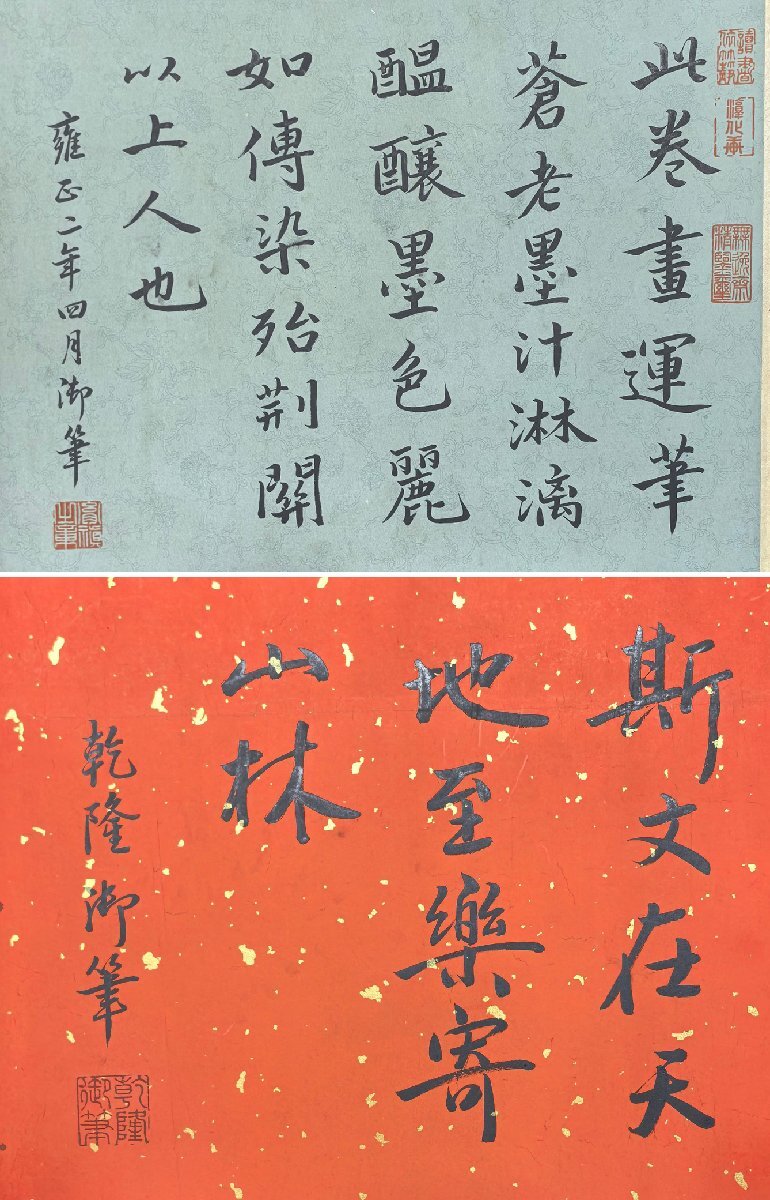 此卷畫運筆
蒼老墨汁淋漓
醖釀墨色麗
如傳染殆荆關
以上人也
雍正二年四月御筆
斯文在天
地至樂寄
山林
乾隆御筆
乾隆御筆